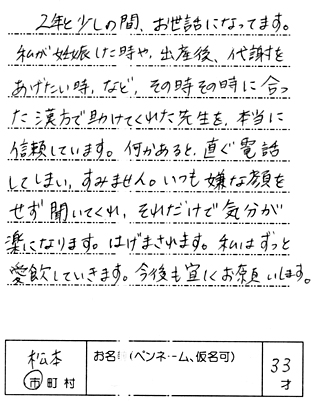 2年と少しの間、お世話になってます。
私が妊娠した時や、出産後、代謝を
あげたい時、など、その時その時に合っ
た漢方で助けてくれた先生を、本当に
信頼しています。何かあると、直ぐ電話
してしまい、すみません。いつも嫌な顔を
せず聞いてくれ、それだけで気分が
楽になります。はげまされます。私はずっと
愛飲していきます。今後も宜しくお願いします。
松本
市町村
お名 (ペンネーム、仮名可)
33
才